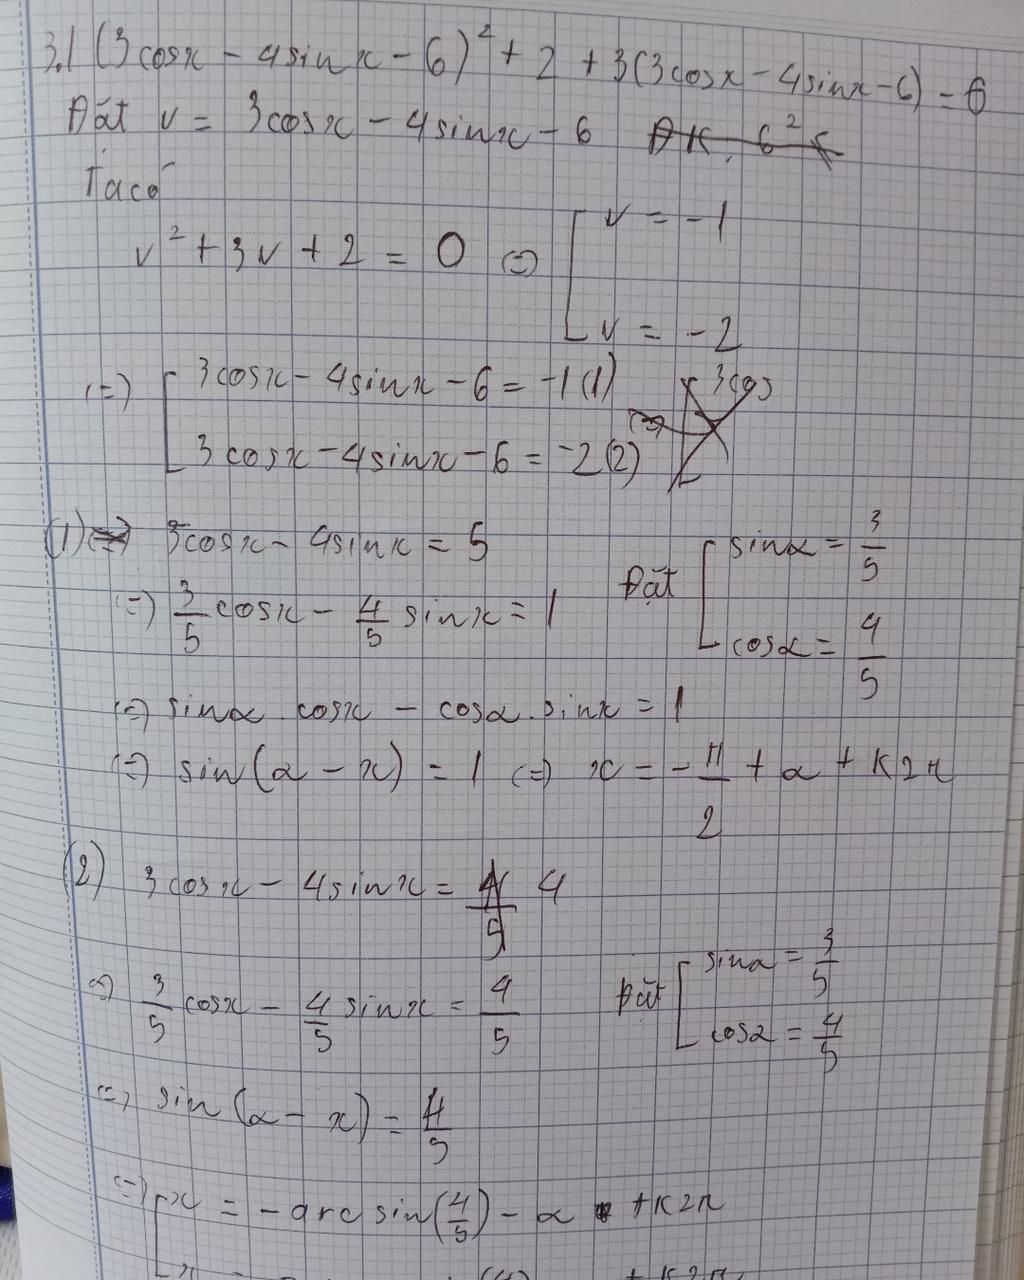 3.1 (3cosx - 4sinx - 6)² + 2 + 3(3cosx - 4sinx - 6) = 0
Đặt v = 3cosx - 4sinx - 6
Ta có
v² + 3v + 2 = 0 (=) [ v = -1
v = -2
(=) [ 3cosx - 4sinx - 6 = -1 (1) 3cos
3cosx - 4sinx - 6 = -2 (2)
(1) (=) 3cosx - 4sinx = 5
Đặt [ sinα = 3/5
cosα = 4/5
(=) 3/5 cosx - 4/5 sinx = 1
(=) sinα.cosx - cosα.sinx = 1
(=) sin(α - x) = 1 (=) x = -π/2 + α + k2π
(2) 3cosx - 4sinx = 4
(=) 3/5 cosx - 4/5 sinx = 4/5
Đặt [ sinα = 3/5
cosα = 4/5
(=) sin(α - x) = 4/5
(=) [ x = -arcsin(4/5) - α + k2π